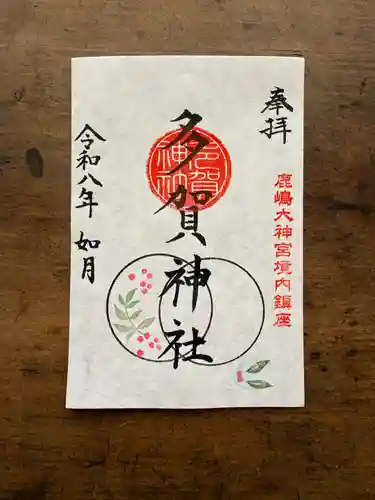 奉拝
鹿嶋大神宮境内鎮座
多賀神社
多賀神社
令和八年 如月